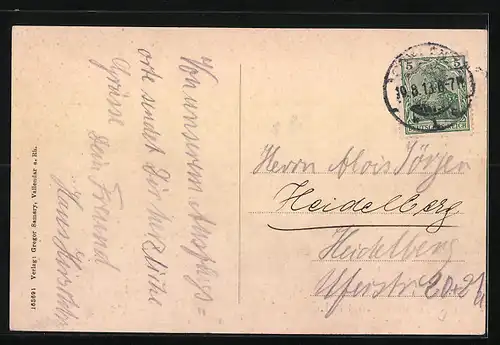 Von unserem Ausflugs=
orte sendet Dir herzliche
Grüsse
Dein Freund
Hans
163691 Verlag: Gregor Samary, Vallendar a. Rh.
5 5
DEUTSCHES REICH
10.8.13.6-7N
Herrn Alois Jörgen
Heidelberg
Heidelberg
Uferstr.